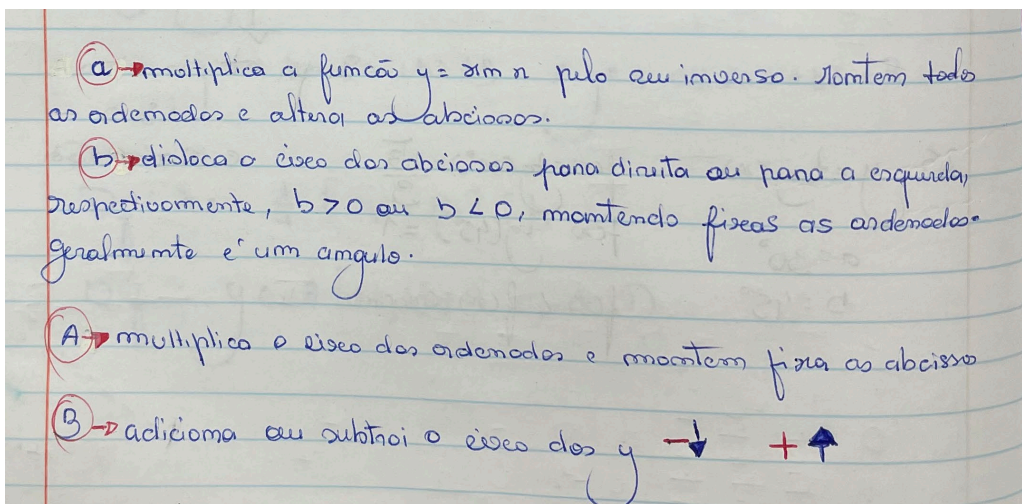 a → moltiplica a função y = sim x pelo seu inverso. Mantem todo
as ordenadas e altera as abcissas.
b → disloca o eixo das abcissas para direita ou para a esquerda,
respectivamente, b > 0 ou b < 0, mantendo fixas as ordenadas.
geralmente é um angulo.
A → multiplica o eixo das ordenadas e mantem fixa as abcissa
B → adiciona ou subtrai o eixo dos y - ↓ + ↑